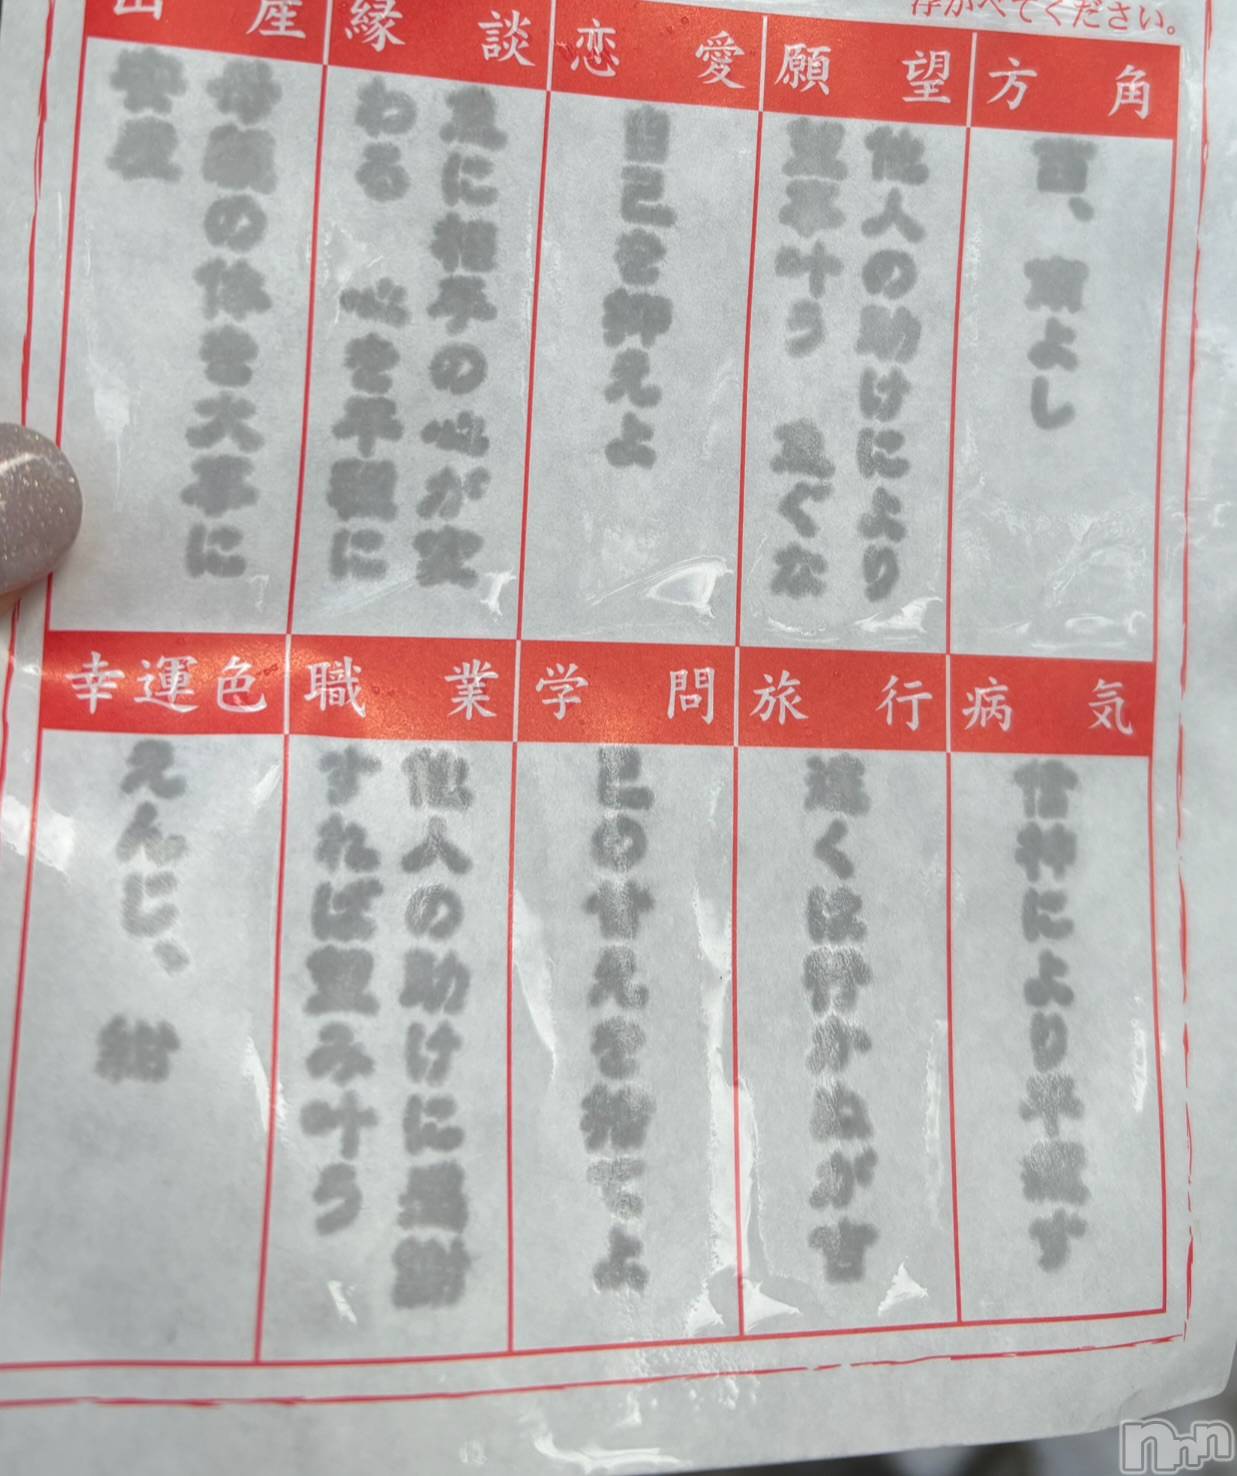 浮かべてください。
方角
西、南よし
願望
他人の助けにより
望事叶う 急ぐな
恋愛
自己を抑えよ
縁談
急に相手の心が変
わる 心を平穏に
出産
母親の体を大事に
安産
病気
信神により平癒す
旅行
遠くは行かぬが吉
学問
己の甘えを捨てよ
職業
他人の助けに感謝
すれば望み叶う
幸運色
えんじ、紺
nnn